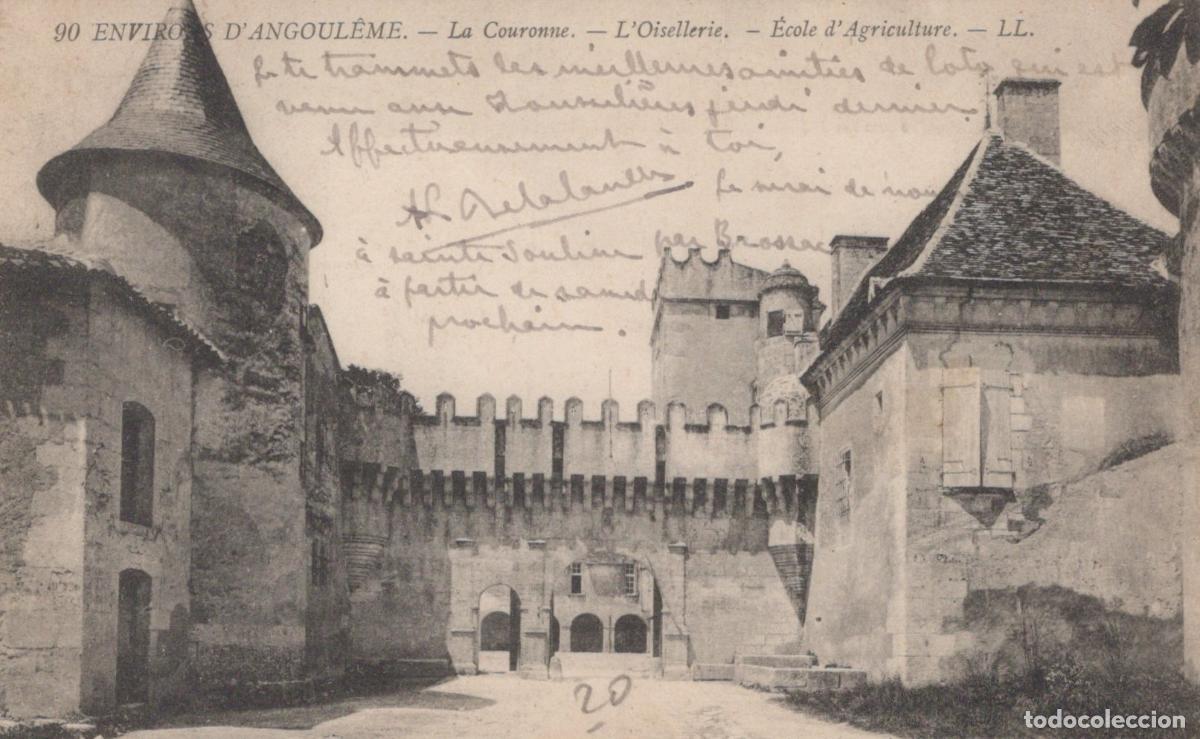 90 ENVIRONS D'ANGOULÊME. — La Couronne. — L'Oisellerie. — École d'Agriculture. — LL.
Je te transmets les meilleures amitiés de qui est
venu aux jeudi dernier.
Affectueusement à toi,
Je serai de
à sainte Souline par Brossac
à partir de samedi
prochain.
20
todocoleccion